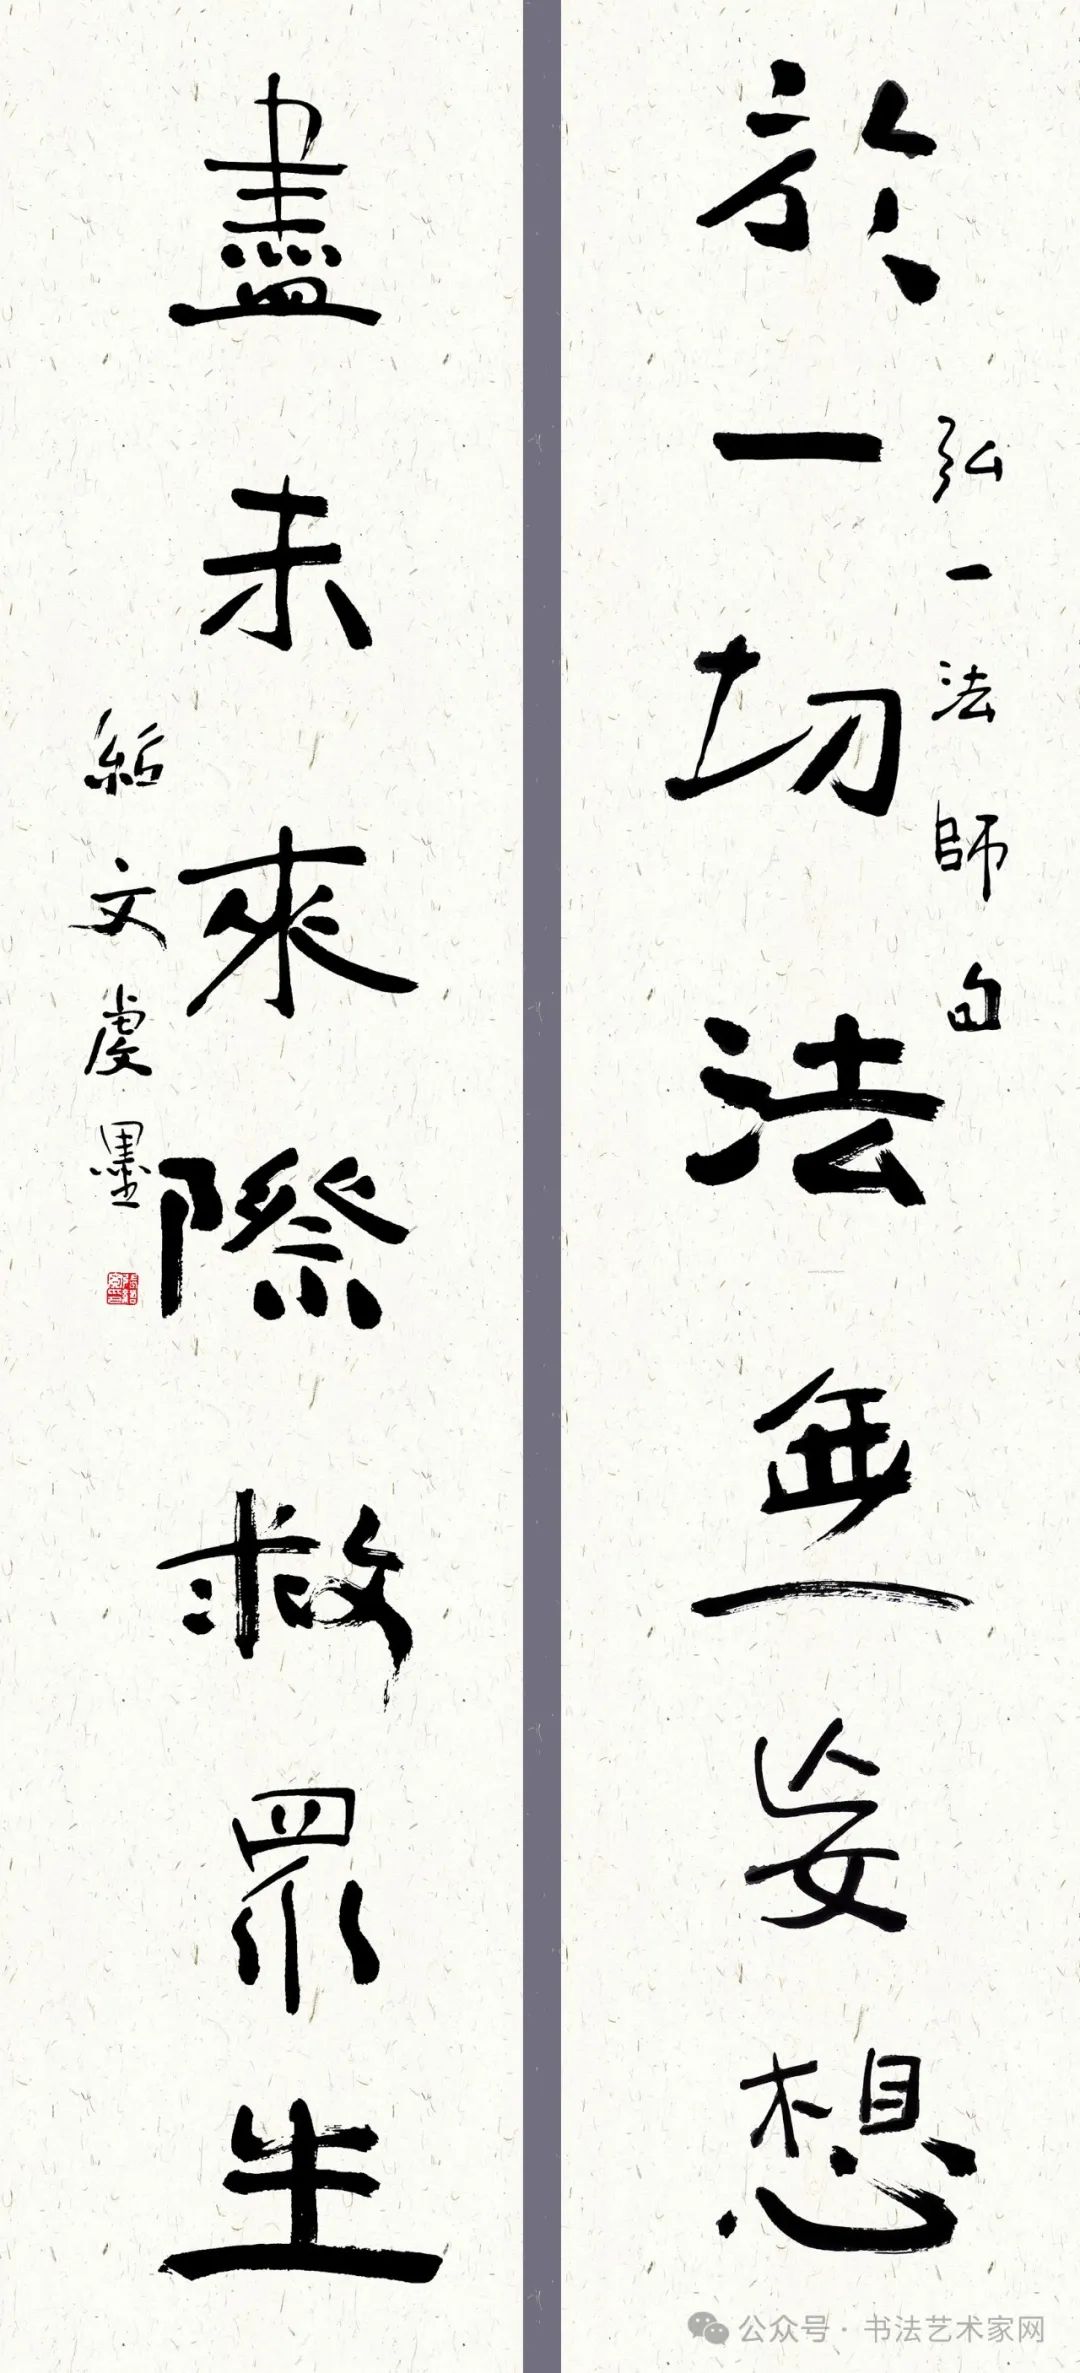 於一切法無妄想
弘一法師句
盡未來際救眾生
紹文虔墨
公众号 · 书法艺术家网